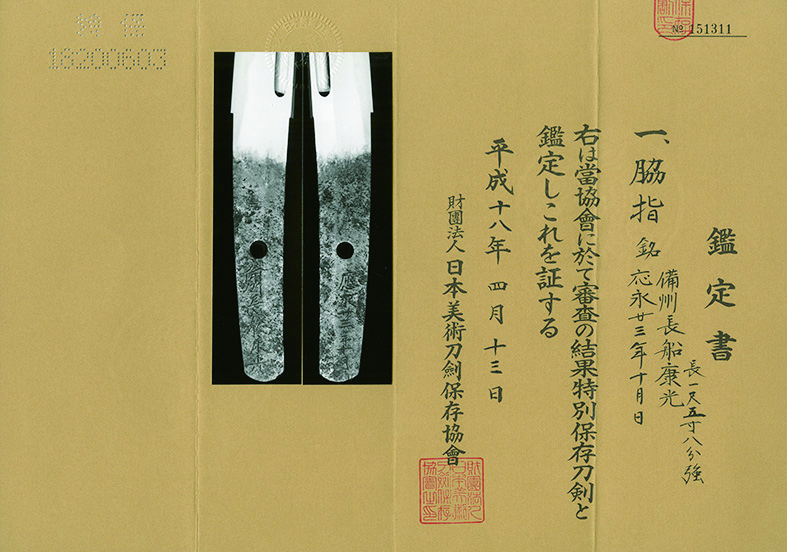 № 151311
鑑定書
一、脇指 銘 備州長船康光
應永廿三年十月日
長一尺五寸八分強
右は當協會に於て審査の結果特別保存刀剣と
鑑定しこれを証する
平成十八年四月十三日
財團法人日本美術刀劍保存協會
特保
18200603